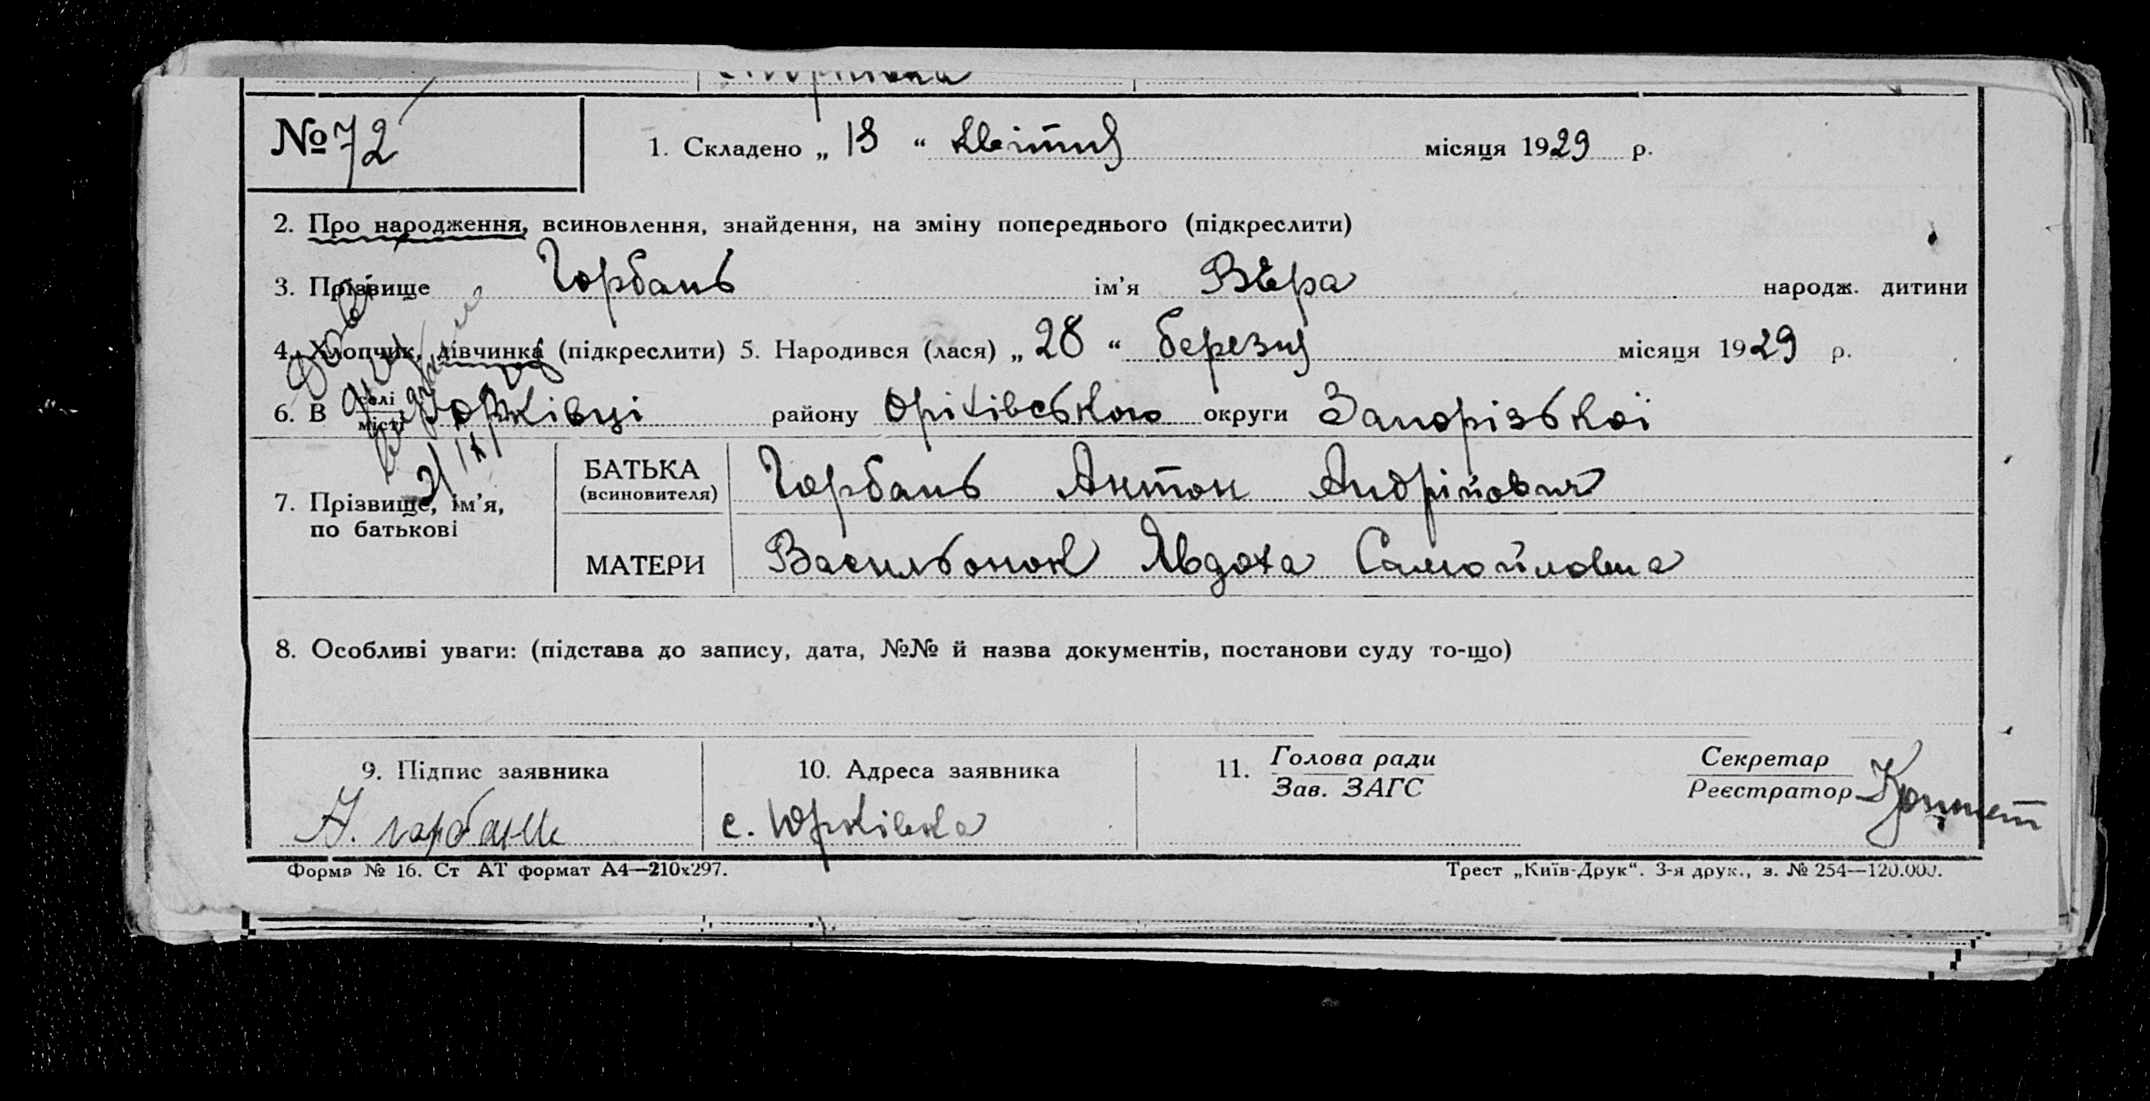 № 72
1. Складено „ 13 “ квітня місяця 1929 р.
2. Про народження, всиновлення, знайдення, на зміну попереднього (підкреслити)
3. Прізвище Горбань ім’я Вѣра народж. дитини
4. Хлопчик, дівчинка (підкреслити) 5. Народився (лася) „ 28 “ березня місяця 1929 р.
6. В селі місті Юрківці району Оріхівського округи Запорізької
7. Прізвище, ім’я, по батькові
БАТЬКА (всиновителя) Горбань Антон Андрійович
МАТЕРИ Васильонок Явдоха Самойловна
8. Особливі уваги: (підстава до запису, дата, №№ й назва документів, постанови суду то-що)
9. Підпис заявника 10. Адреса заявника 11. Голова ради Секретар
Зав. ЗАГС Реєстратор
А. Горбань с. Юрківка
Форма № 16. Ст АТ формат А4—210х297. Трест „Київ-Друк“. 3-я друк., з. № 254—120.000.